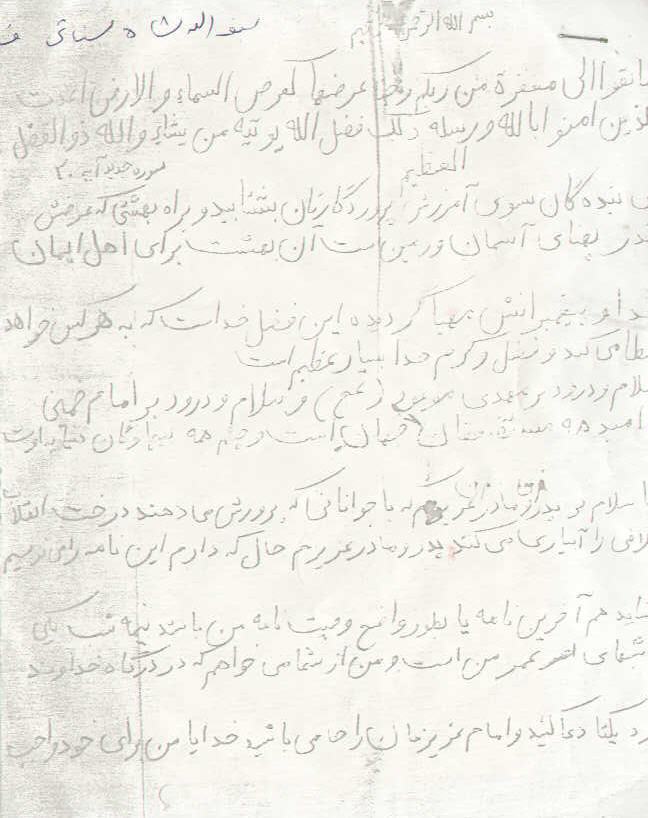 بسم الله الرحمن الرحیم
سابقوا الی مغفرة من ربکم و جنة عرضها کعرض السماء والارض اعدت
للذین امنوا بالله ورسله ذلک فضل الله یوتیه من یشاء والله ذوالفضل
العظیم
سوره حدید آیه ۲۰
بنده گان سوی آمرزش پروردگارتان بشتابید و براه بهشتی که عرضش
بقدر پهنای آسمان و زمین است آن بهشت برای اهل ایمان
خدا و پیغمبرانش مهیا گردیده این فضل خداست که به هرکس خواهد
عطا می کند و فضل و کرم خدا بسیار عظیم است
سلام و درود بر مهدی موعود (عج) و سلام و درود بر امام خمینی
امید همه مستضعفان جهان است و چشم همه
با سلام بر پدر و مادر عزیزم که با جوانانی که پرورش می دهند درخت انقلاب
اسلامی را آبیاری می کنند پدر و مادر عزیزم حال که دارم این نامه را می نویسم
شاید هم آخرین نامه یا بطور واضح وصیت نامه من باشد نیمه شب یکی
شبهای عمر من است و من از شما می خواهم که در درگاه خداوند
یکتا دعا کنید و امام عزیزمان را حامی باشید خدایا من برای خود واجب